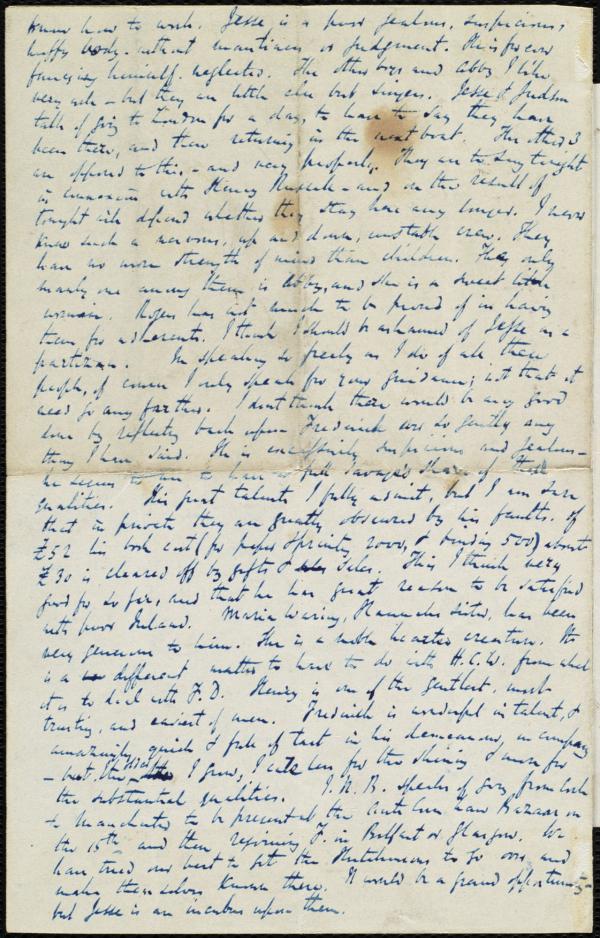 know how to work. Jesse is a poor jealous, suspicious,
huffy body, without manliness or judgment. He is for ever
fancying himself neglected. The other boys and Abby I like
very well - but they are little else but singers. Jesse & Judson
talk of going to London for a day, to have to say they have
been there, and then returning in the next boat. The other 3
are opposed to this, - and very properly. They are to sing tonight
in connexion with Henry Russell - and on the result of
tonight will depend whether they stay here any longer. I never
knew such a nervous, up and down, unstable crew. They
have no more strength of mind than children. The only
manly one among them is Abby, and she is a sweet little
woman. Rogers has not much to be proud of in having
them for adherents. I think I should be ashamed of Jesse as a
partizan. In speaking so freely as I do of all these
people, of course I only speak for your guidance; not that it
need go any farther. I dont think there would be any good
done by reflecting back upon Frederick ever so gently any
thing I have said. He is excessively suspicious and jealous -
he seems to me to have a full savage's share of these
qualities. His great talents I fully admit, but I am sure
that in private they are greatly obscured by his faults. Of
£52 his book cost (for paper & printing 2000, & binding 500) about
£30 is cleared off by gifts & sales. This I think very
good for so far, and that he has great reason to be satisfied
with poor Ireland. Maria Waring, Hannah's sister, has been
very generous to him. She is a noble hearted creature. It
is a different matter to have to do with H.C.W. from what
it is to deal with F.D. Henry is one of the gentlest, most
trusting, and easiest of men. Frederick is wonderful in talent, &
amazingly quick & full of tact in his demeanour, in company
- but, the older I grow, I care less for the shining & more for
the substantial qualities. J.N.B. speaks of going from Cork
to Manchester to be present at the Anti Corn Law Bazaar on
the 15th and then rejoining F. in Belfast or Glasgow. We
have tried our best to get the Hutchinsons to go over and
make themselves known there. It would be a grand opportunity
but Jesse is an incubus upon them.